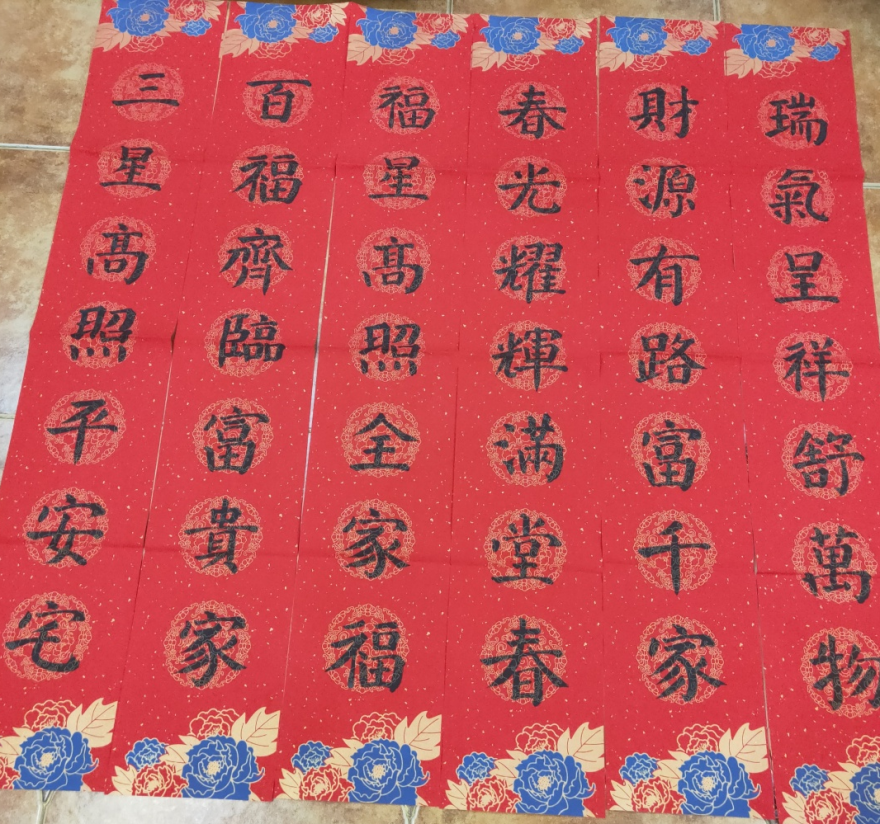 三星髙照平安宅
百福齊臨富貴家
福星髙照全家福
春光耀輝滿堂春
財源有路富千家
瑞氣呈祥舒萬物